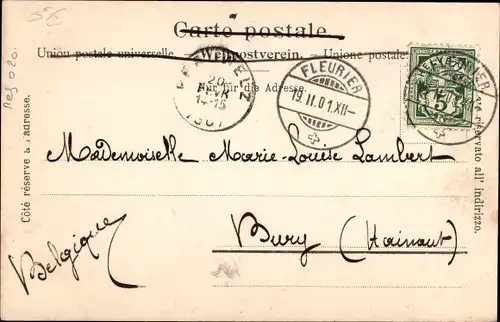 5€
Reg 020.
Carte postale.
Union postale universelle. — Weltpostverein. — Unione postale
Nur für die Adresse.
20
14-15
1901
FLEURIER
19. II. 01. XII-
FLEURIER
5
Côté réservé à l'adresse.
riservato all' indirizzo.
Mademoiselle Marie-Louise Lambert
Bury (Hainaut)
Belgique